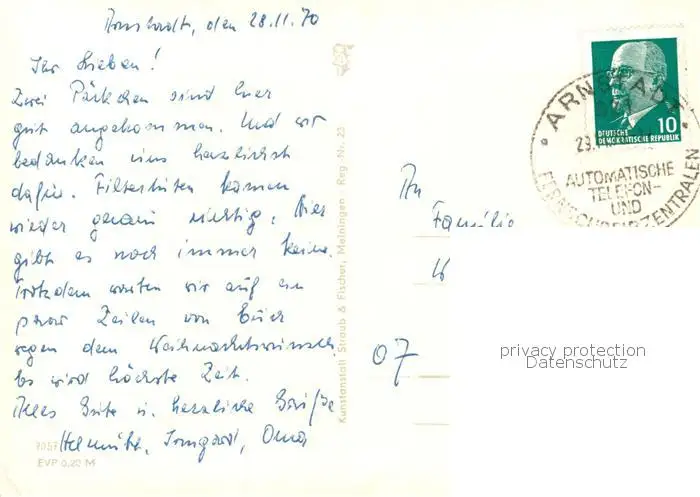 Arnstadt, den 28.11.70
Ihr Lieben!
Zwei Päckchen sind hier
gut angekommen. Und wir
bedanken uns herzlichst
dafür. Filtertüten kamen
wieder genau richtig, hier
gibt es noch immer keine.
Trotzdem warten wir auf ein
paar Zeilen von Euch
wegen dem Weihnachtswunsch.
Es wird höchste Zeit.
Alles Gute u. herzliche Grüße
Helmut, Irmgard, Oma
EVP 0,20 M
Kunstanstalt Straub & Fischer, Meiningen · Reg.-Nr. 25
DEUTSCHE
DEMOKRATISCHE REPUBLIK
10
ARNSTADT
AUTOMATISCHE
TELEFON-
UND
FERNSCHREIBZENTRALEN
An
Familie
W
07
privacy protection
Datenschutz